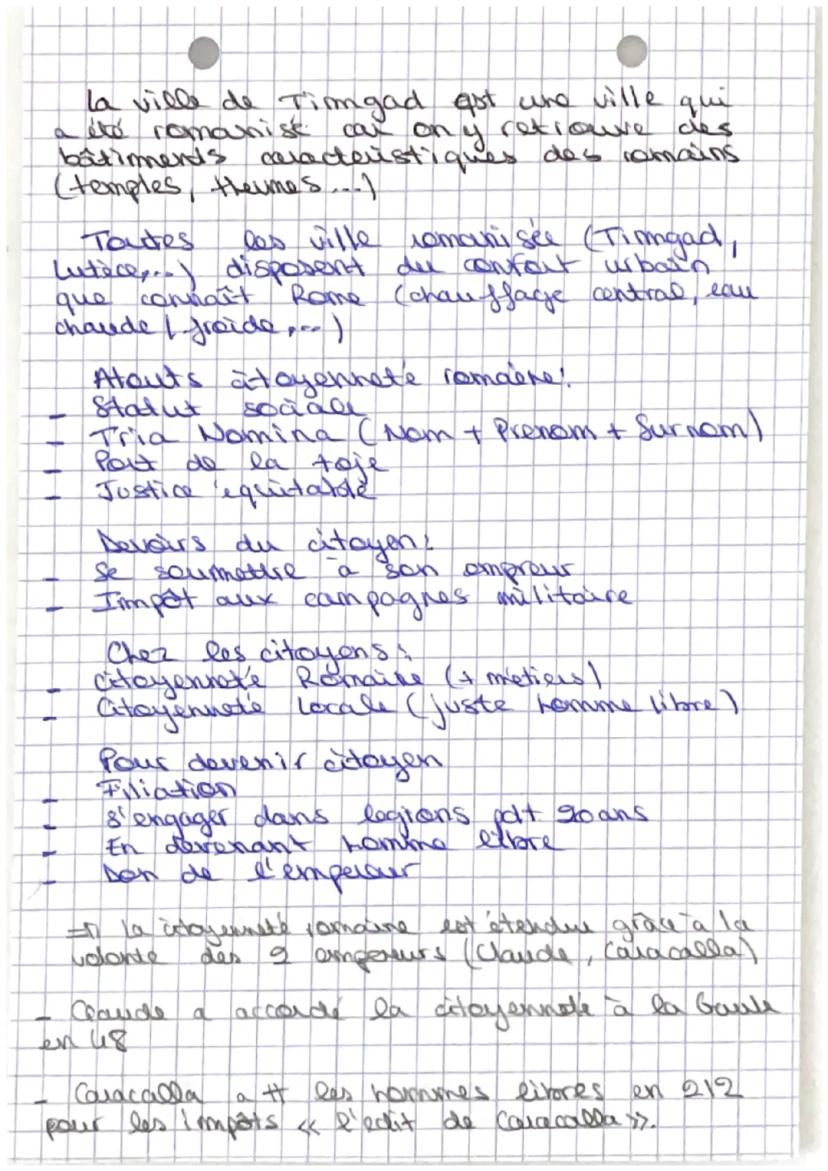 La ville de Timgad est une ville qui
a été romanisé car on y retrouve des
bâtiments caractéristiques des romains
(temples, thermes...)
Toutes les ville romanisée (Timgad,
Lutèce,...) disposent du confort urbain
que connaît Rome (chauffage central, eau
chaude / froide,...)
Atouts citoyenneté romaine:
- Statut sociale
- Tria Nomina (Nom + Prenom + Surnom)
- Port de la toje
- Justice équitable
Devoirs du citoyen:
- Se soumettre à son empreur
- Impôt aux campagnes militaire
Chez les citoyens:
- Citoyenneté Romaine (+ métiers)
- Citoyenneté Locale (juste homme libre)
Pour devenir citoyen
- Filiation
- S'engager dans legions pdt 20 ans
- En devenant homme libre
- Don de l'empereur
=> La citoyenneté romaine est étendue grâce à la
volonté des 2 empereurs (Claude, Caracalla)
- Claude a accordé la citoyenneté à la Gaule
en 48
- Caracalla a tt les hommes libres en 212
pour les impôts « l'edit de Caracalla ».